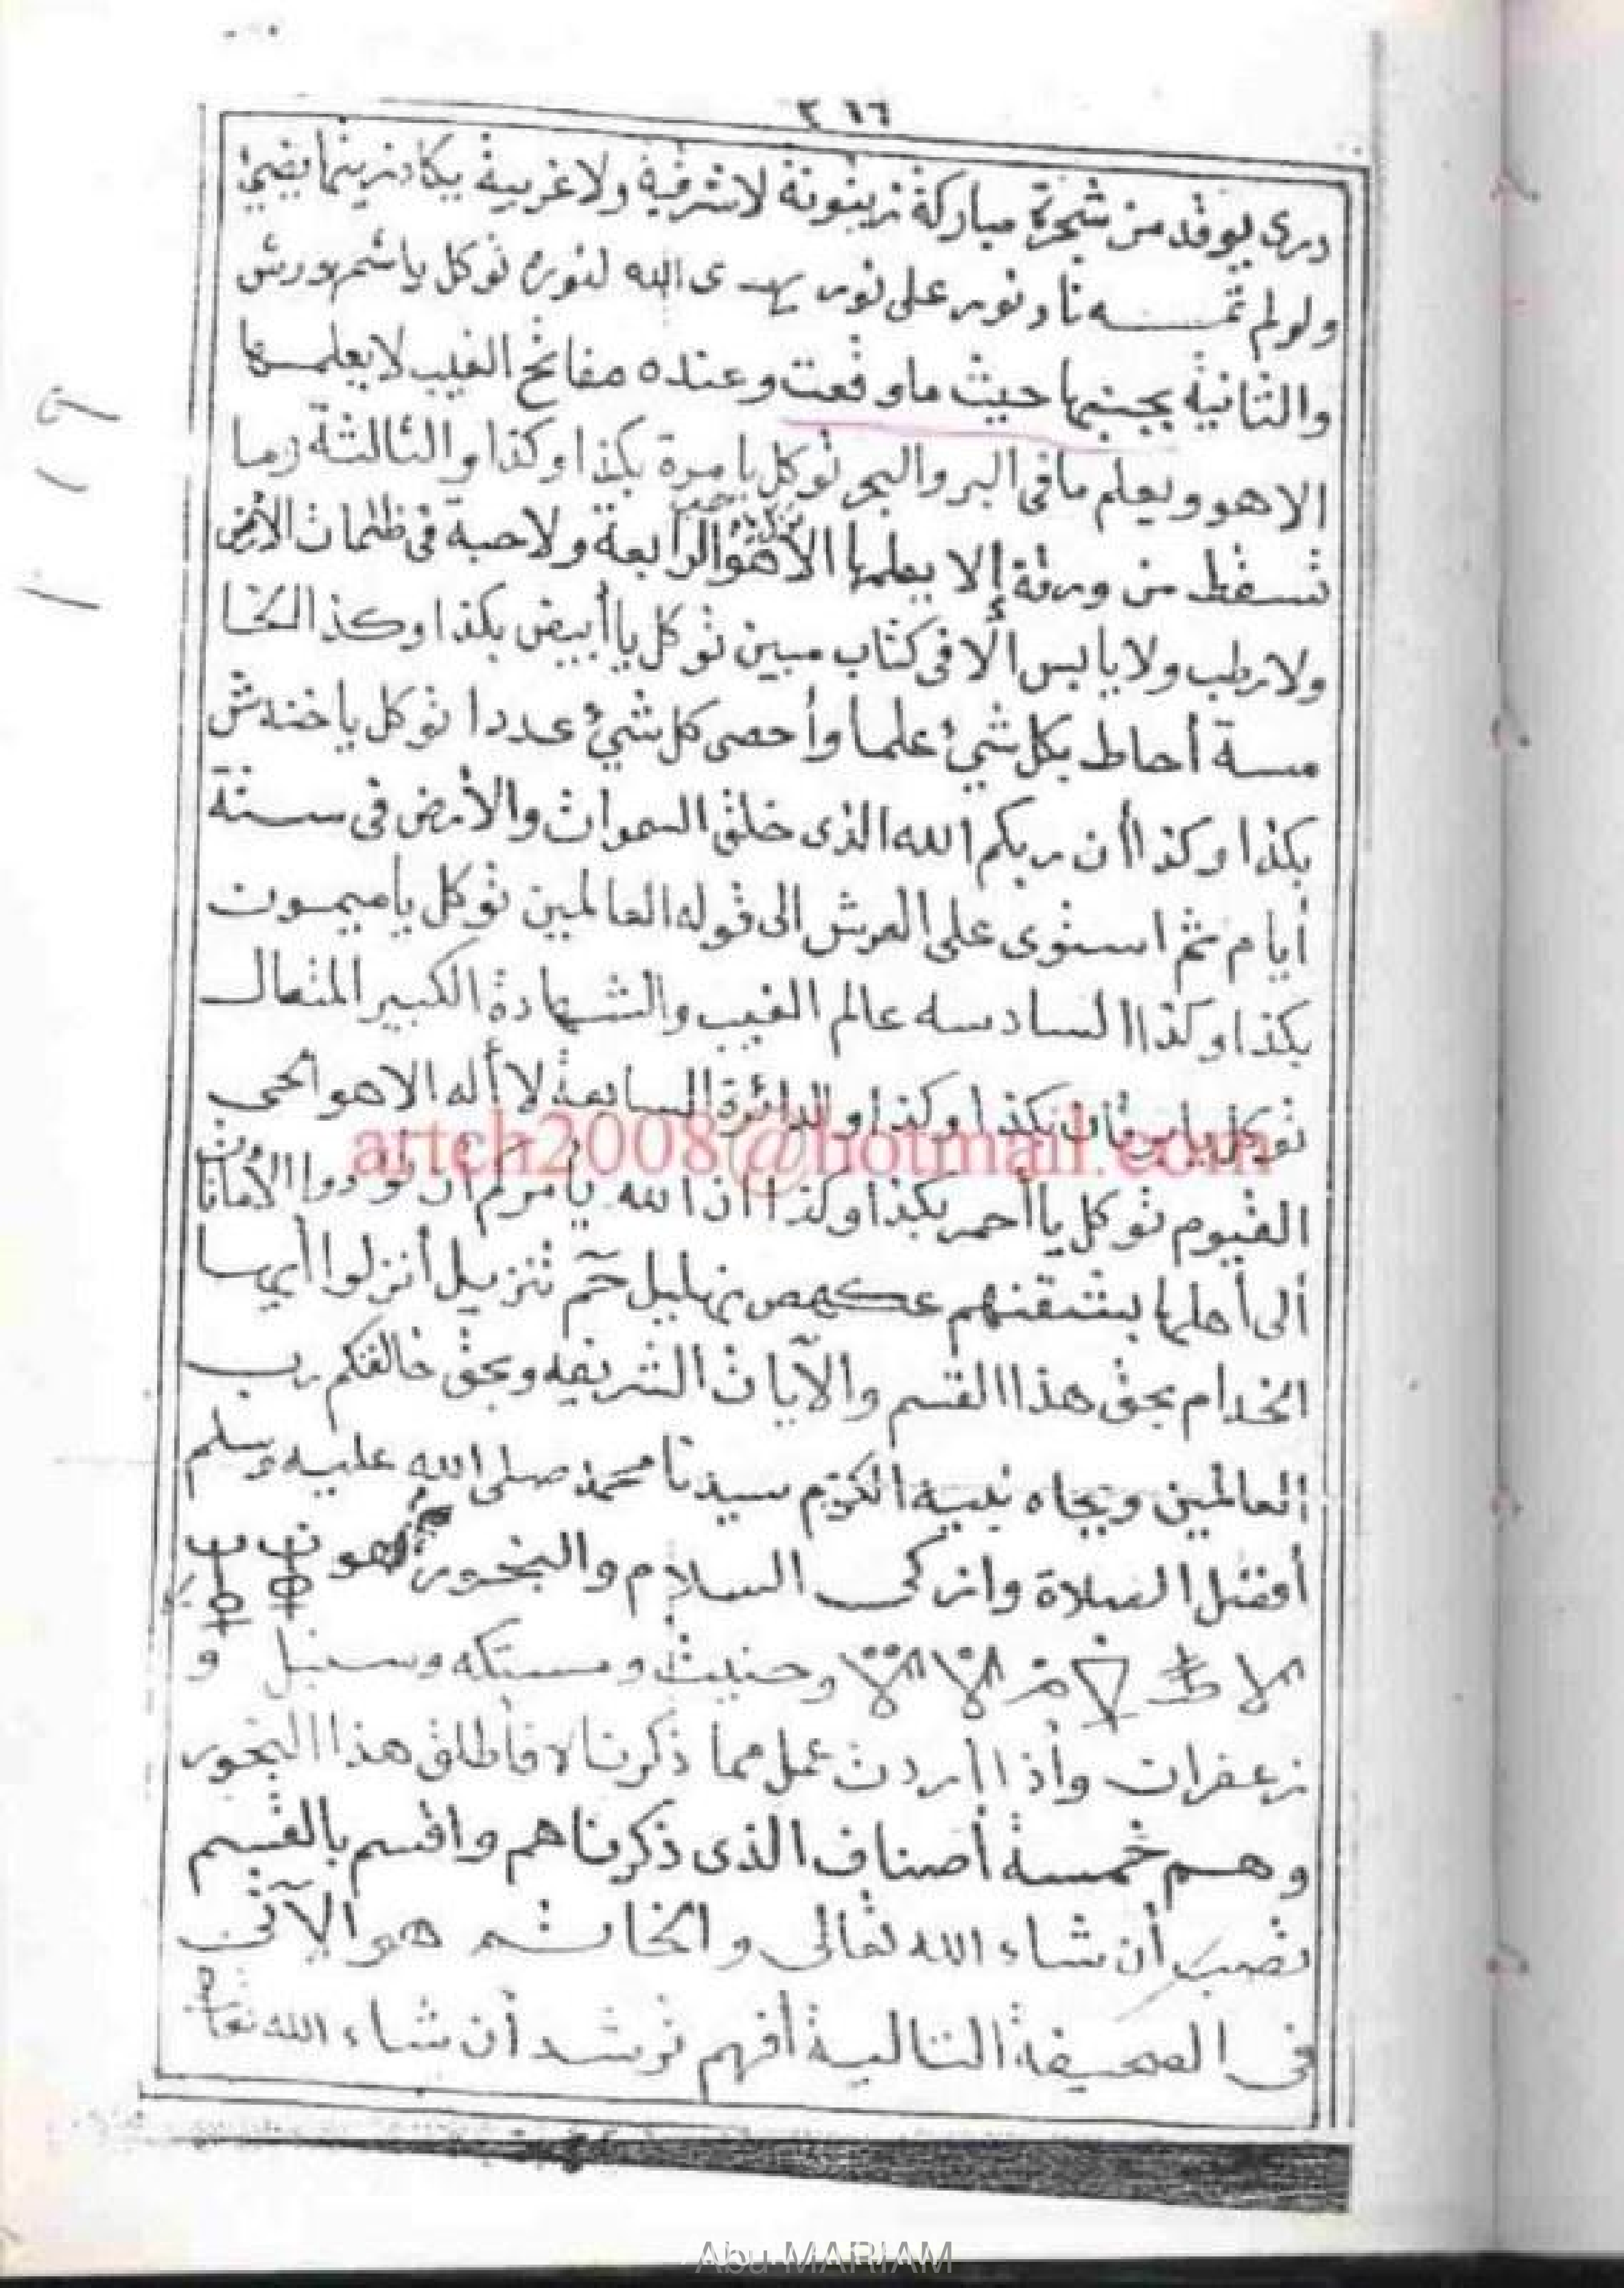 ٣١٦
درى يوقد من شجرة مباركة زيتونة لاشرقية ولاغربية يكاد زيتها يضئ
ولولم تمسه نار نور على نور يهدى الله لنوره توكل ياشمهورش
والثانية بجبنها حيث ماوقعت وعنده مفاتح الغيب لايعلمها
الاهو ويعلم مافى البر والبحر توكل يامرة بكذا وكذا والثالثة وما
تسقط من ورقة إلا يعلمها الاهو الرابعة ولاحبة فى ظلمات الأرض
ولارطب ولايابس ألافى كتاب مبين توكل ياأبيض بكذا وكذ الخا
مسة أحاط بكل شئ علما وأحصى كل شئ عددا توكل ياخندش
بكذا وكذا أن ربكم الله الذى خلق السموات والأرض فى ستة
أيام ثم استوى على العرش الى قوله العالمين توكل ياميمون
بكذا وكذا السادسه عالم الغيب والشهادة الكبير المتعال
توكل يابرقان بكذا وكذا والدائرة السابعة لاأله الاهو الحى
artch2008@hotmail.com
القيوم توكل ياأحمر بكذا وكذا ان الله يأمركم ان تؤدوا الأمانات
ألى أهلها حم تنزيل أنزلوا أيها
الخدام بحق هذا القسم والآيات الشريفه وبحق خالقكم رب
العالمين وبجاه نبيه الكريم سيدنا محمد صلى الله عليه وسلم
أفضل الصلاة وازكى السلام والبخور هو
وحنيت ومستكه وسنبل و
زعفران وأذا أردت عمل مما ذكرنا لا فأطلق هذا البخور
وهم خمسة أصناف الذى ذكرناهم واقسم بالقسم
تصب أن شاء الله تعالى والخاتم هو الآتى
فى الصحيفة التالية أفهم ترشد أن شاء الله تعالى
Abu-MARIAM